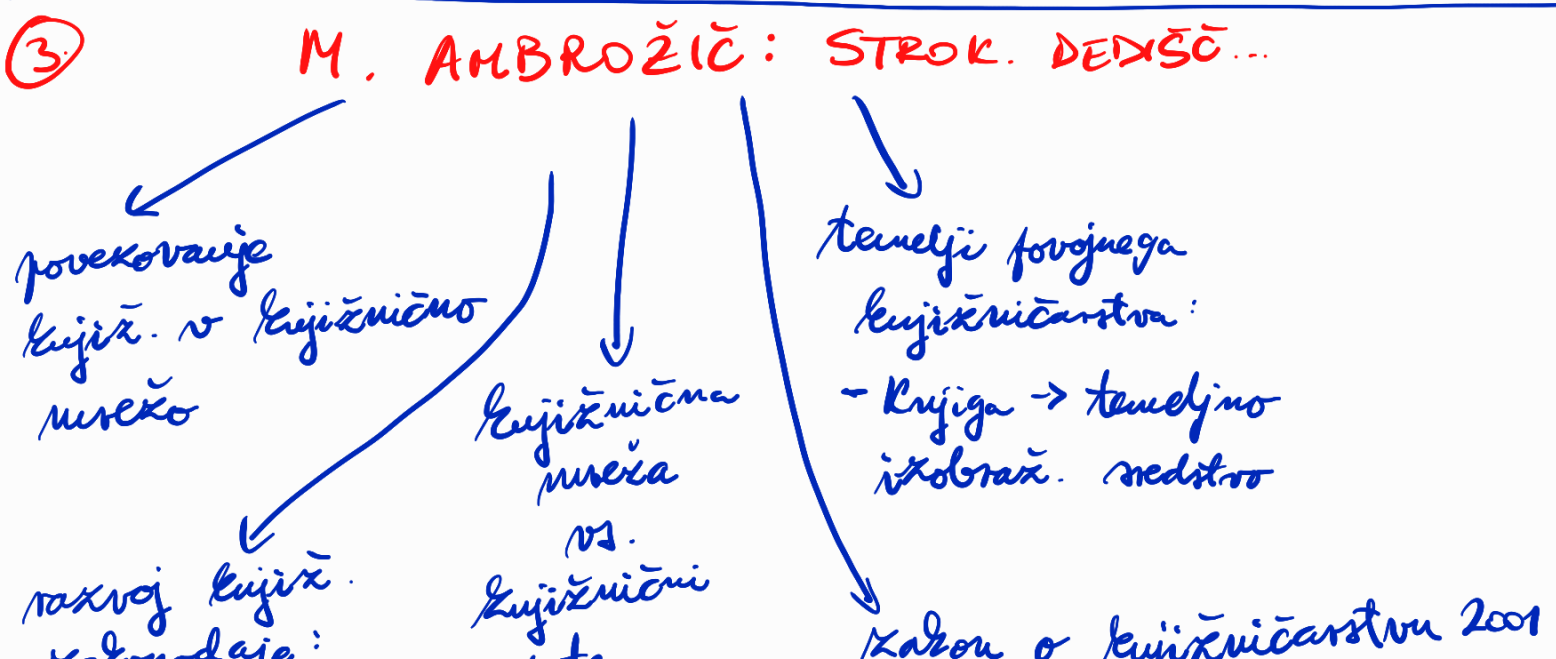 3. M. AMBROŽIČ: STROK. DEDIŠČ...
povezovanje
knjiž. v knjižnično
mrežo
razvoj knjiž.
zakonodaje:
knjižnična
mreža
vs.
knjižnični
temelji povojnega
knjižničarstva:
- Knjiga -> temeljno
izobraž. sredstvo
zakon o knjižničarstvu 2001